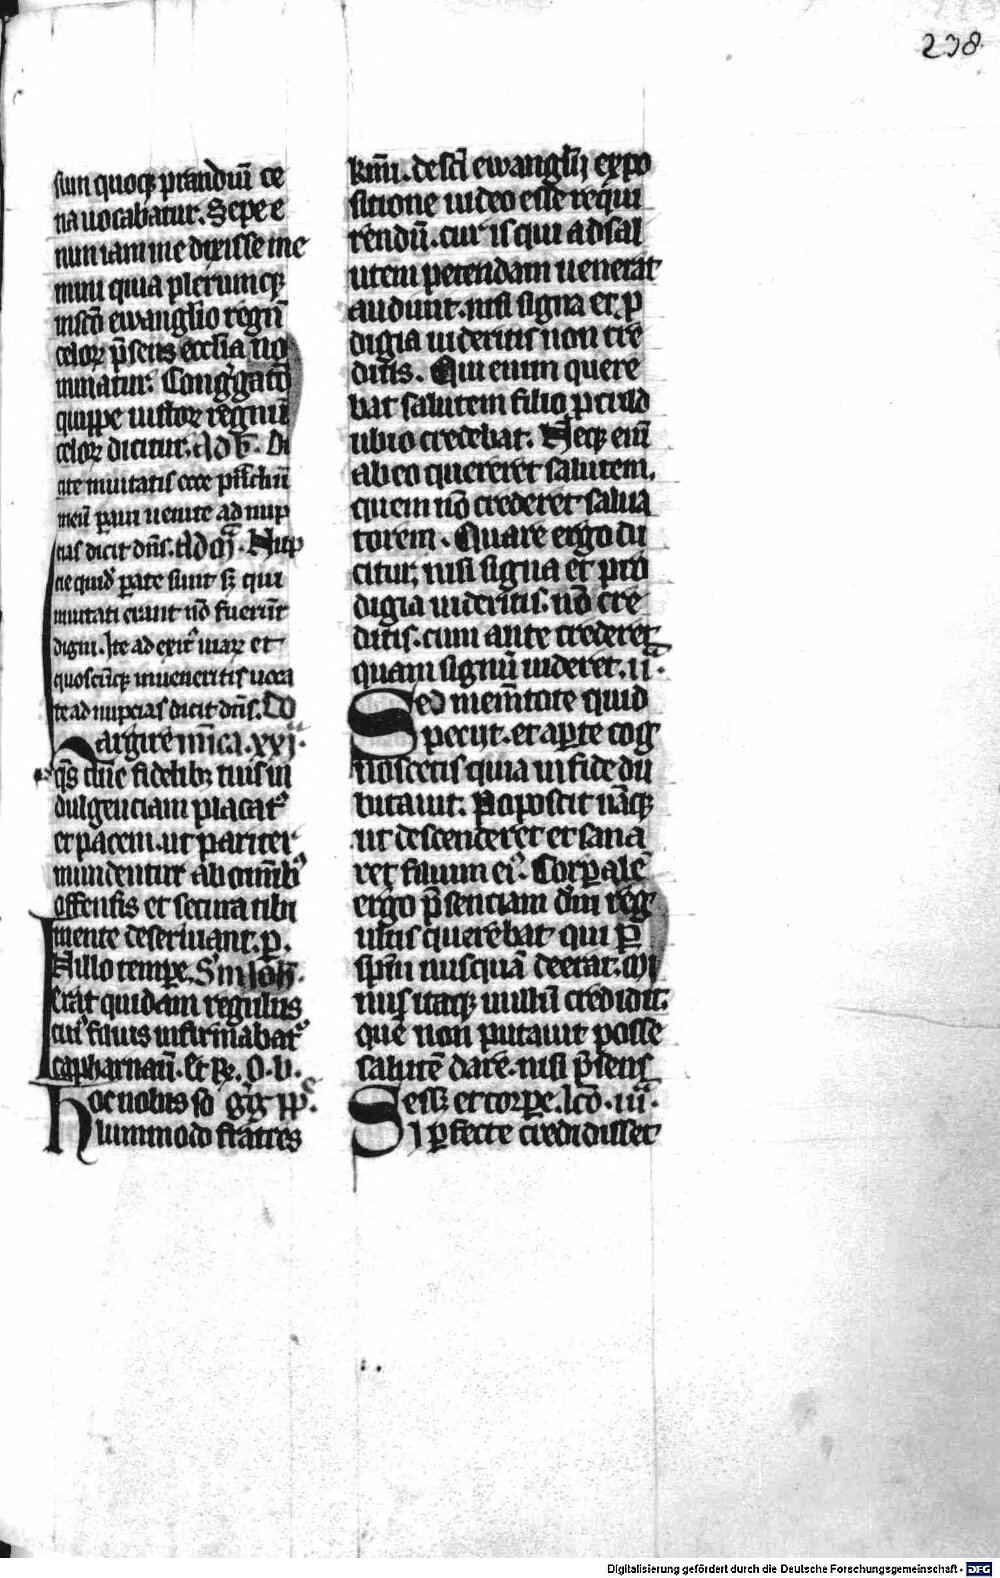 238
siun quoqꝫ prandiuꝫ ce
na uocabatur. Sepe e
nim iam me dixisse me
mini quia plerumqꝫ
in sc̄o ewanglio regnū
celoꝝ p̄sens eccl̄ia no
minatur. Congͣgatō
quippe iustoꝝ regnū
celoꝝ dicitur. Ad b̄. Di
cite inuitatis ecce
meū paui uenite ad nup
tias dicit dn̄s. Ad m̄. Nup
cie quid̄ ꝑate sunt sꝫ qui
inuitati erant nō fuerūt
digni. Ite ad exitꝰ uiaꝝ et
quoscūqꝫ inueneritis uoca
te ad nupcias dicit dn̄s. Do
Largire mīca. xxi.
q̄s dn̄e fidelibꝫ tuis in
dulgenciam placatꝰ
et pacem. ut pariter
mundentur ab om̄ibꝰ
offensis et secura tibi
mente deseruiant. p.
In illo tempe. S'm Joh̄.
Erat quidam regulus
cuiꝰ filius infirmabatꝰ
capharnaū. Et R. O. b.
hoc nobis so gͥg pp.
lummodo fratres
km̄i. de sc̄i ewanglij expo
sitione uideo esse requi
rendū. cur is qui ad sal
utem petendam uenerat
audiuit. nisi signa et ꝓ
digia uideritis non cre
ditis. Qui enim quere
bat salutem filio ꝓculd
ubio credebat. Neqꝫ enī
ab eo quereret salutem.
quem nō crederet salua
torem. Quare ergo di
citur, nisi signa et pro
digia uideritis. nō cre
ditis. cum ante crederet
quam signū uideret. ii.
Sed mem̄tote quid
peciit. et aꝑte cog
noscetis quia in fide du
bitauit. Poposcit nāqꝫ
ut descenderet et sana
ret filium eiꝰ. Corꝑalē
ergo p̄senciam dn̄i reg
ulus querebat qui ꝑ
sp̄m nusquā deerat. Mi
nus itaqꝫ in illū credidit.
que non putauit posse
salutē dare. nisi p̄sens
esset et corꝑe. lcō. iii.
Si ꝑfecte credidisset
Digitalisierung gefördert durch die Deutsche Forschungsgemeinschaft - DFG